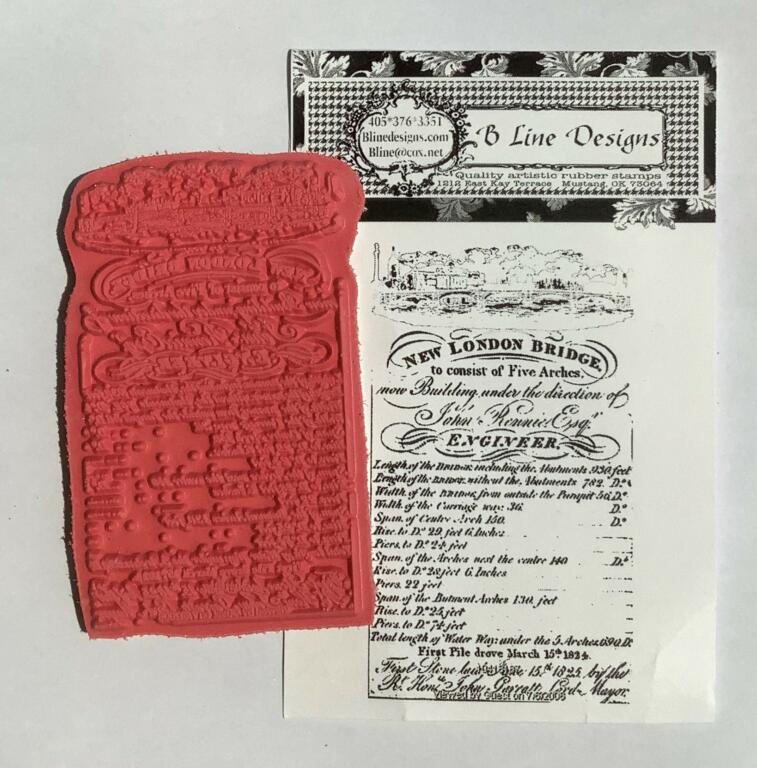 405*376*3351
Blinedesigns.com
Bline@cox.net
B Line Designs
Quality artistic rubber stamps
1212 East Kay Terrace Mustang, OK 73064
NEW LONDON BRIDGE,
to consist of Five Arches,
now Building under the direction of
John Rennie Esqr
ENGINEER.
Length of the BRIDGE including the Abutments 930 feet
Length of the BRIDGE without the Abutments 782. Do
Width of the BRIDGE from outside the Parapit 56 Do
Width of the Carriage way 36. Do
Span of Centre Arch 150. Do
Rise to Do 29 feet 6 Inches
Piers to Do 24 feet
Span of the Arches next the centre 140 Do
Rise to Do 28 feet 6 Inches
Piers 22 feet
Span of the Butment Arches 130 feet
Rise to Do 25 feet
Piers to Do 74 feet
Total length of Water Way under the 5 Arches 690 D.
First Pile drove March 15th 1824.
First Stone laid 15th 1825 by the
Rt Honble John Garratt Lord Mayor.
Viewed by Guest on 7/6/2006